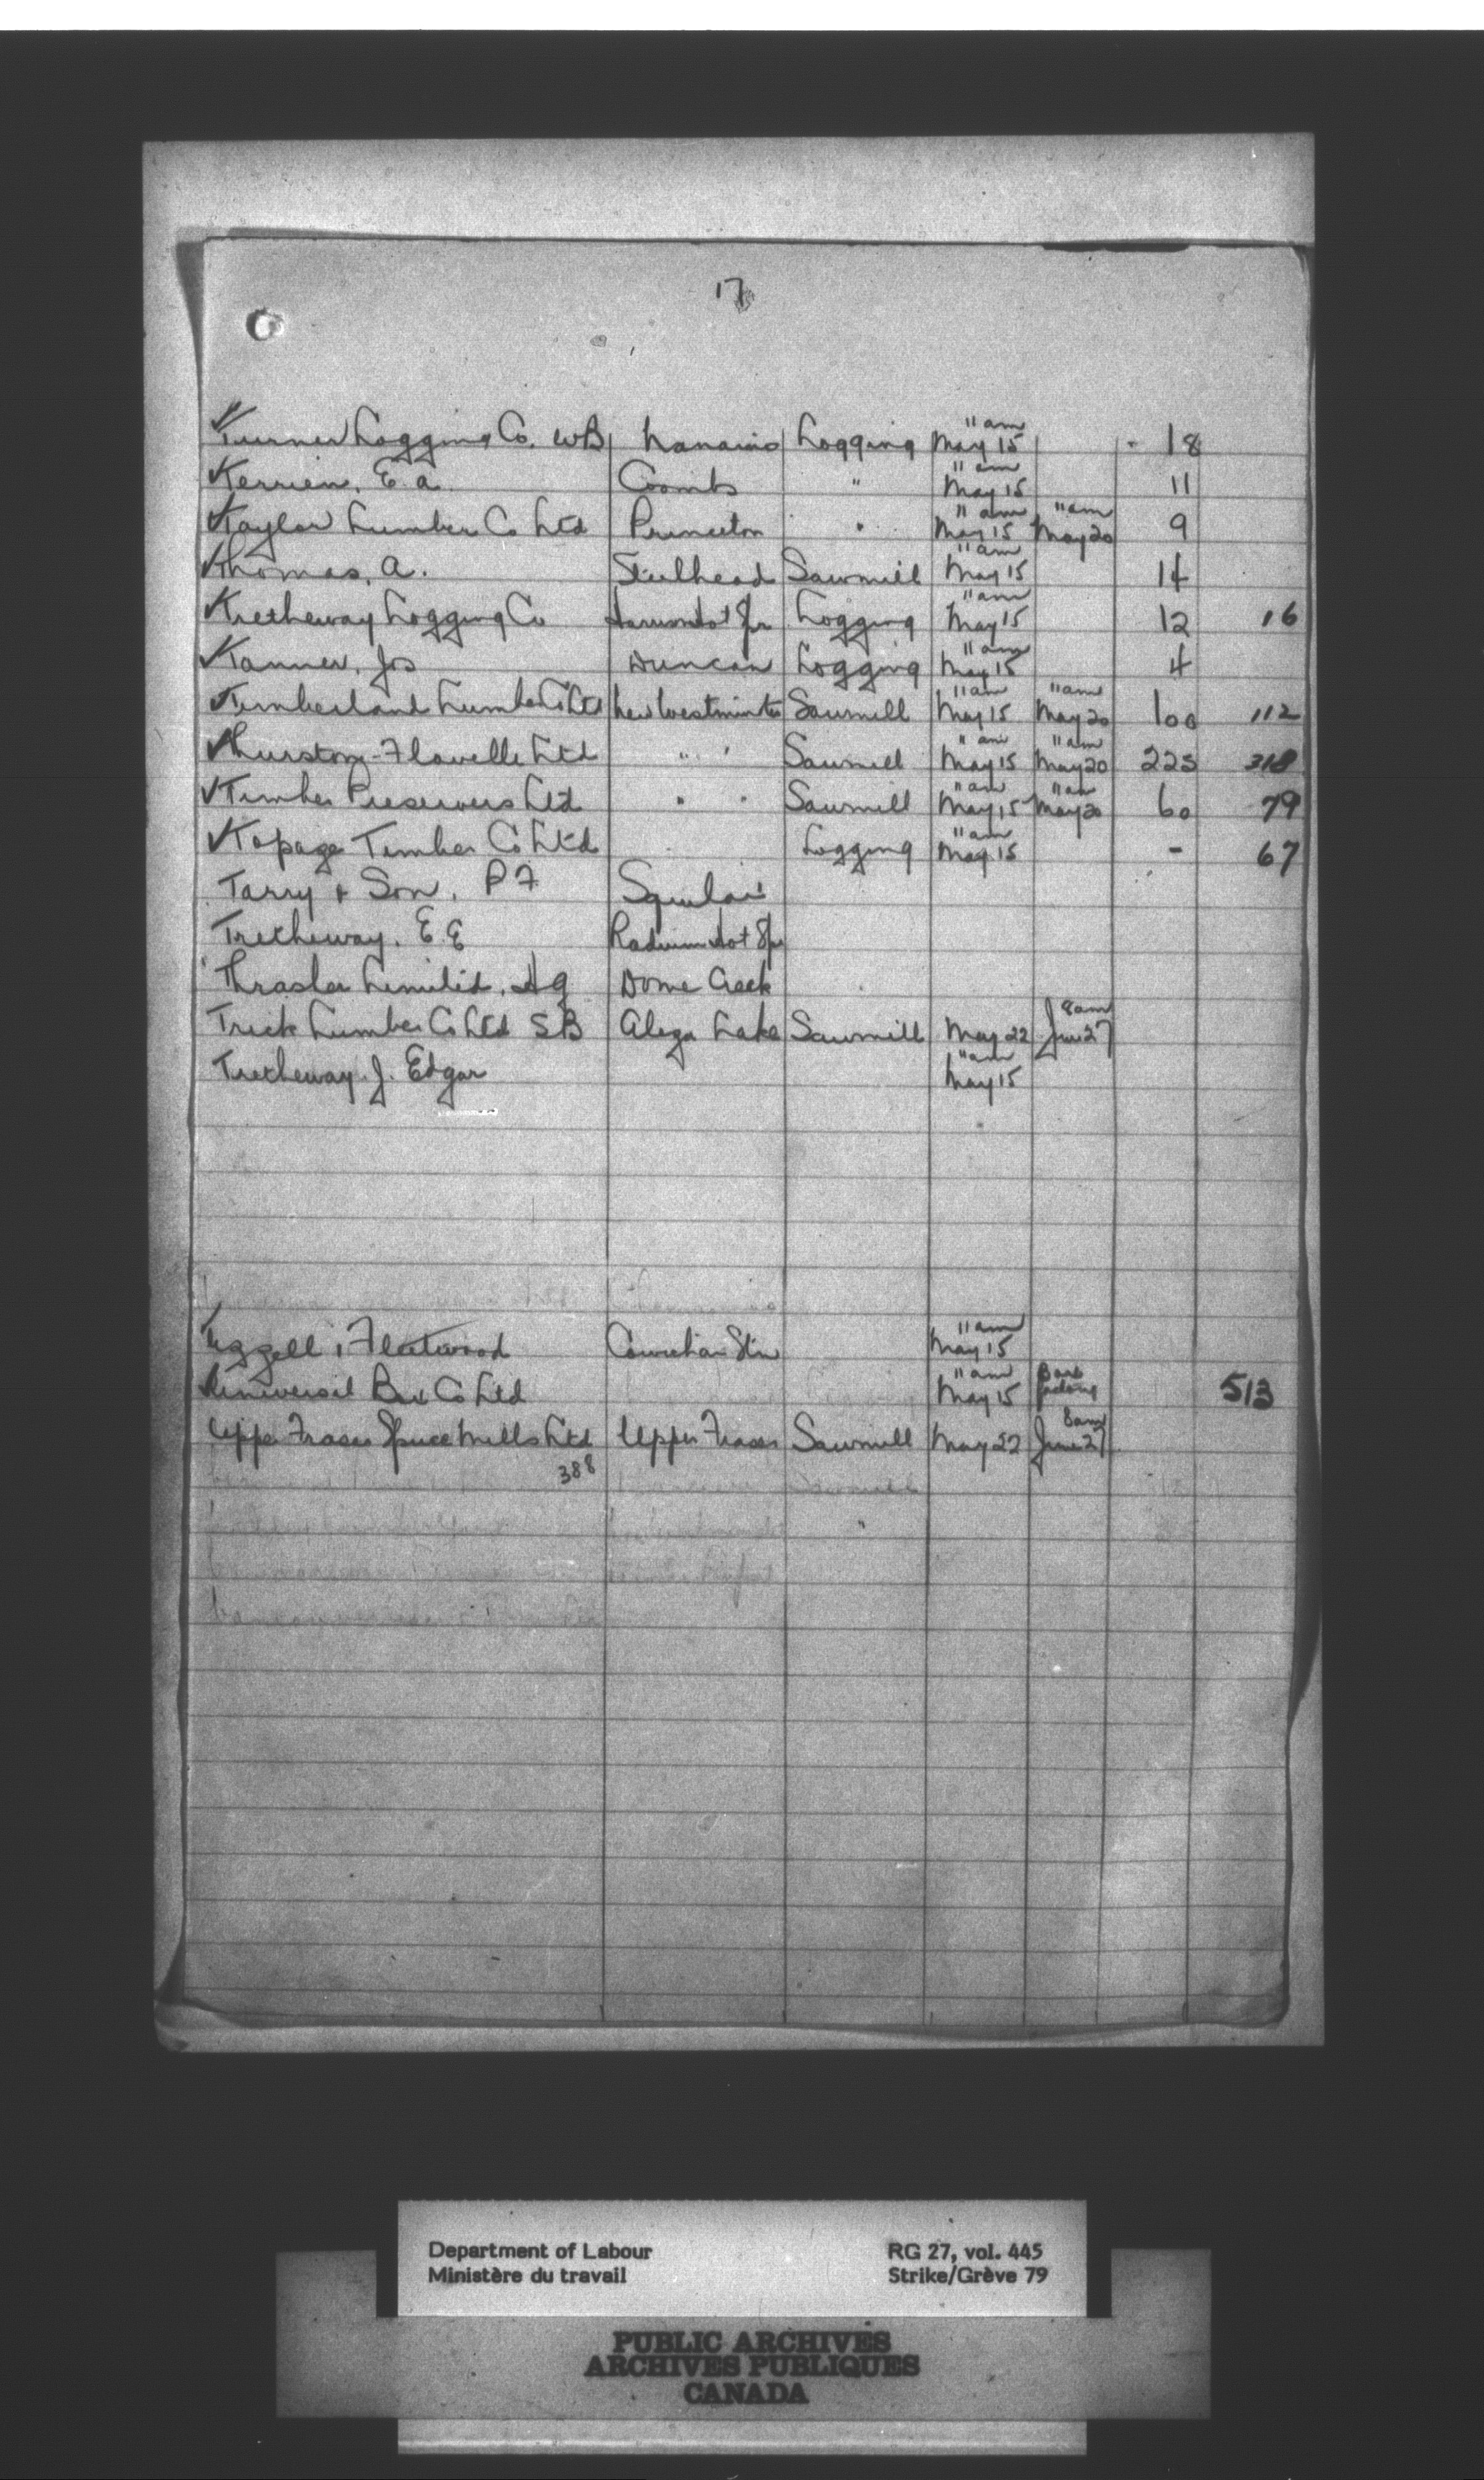 17
✓Turner Logging Co. WB Nanaimo Logging 11 am May 15 18
✓Terrien, E.A. Coombs " 11 am May 15 11
✓Taylor Lumber Co Ltd Princeton " 11 am May 15 11 am May 20 9
✓Thomas, A. Steelhead Sawmill 11 am May 15 14
✓Tretheway Logging Co Harrison Hot Spr Logging 11 am May 15 12 16
✓Tanner, Jos Duncan Logging 11 am May 15 4
✓Timberland Lumber Co Ltd New Westminster Sawmill 11 am May 15 11 am May 20 100 112
✓Thurston-Flavelle Ltd " " Sawmill 11 am May 15 11 am May 20 225 318
✓Timber Preservers Ltd " " Sawmill 11 am May 15 11 am May 20 60 79
✓Topaze Timber Co Ltd Logging 11 am May 15 - 67
Tarry & Son, P F
Tretheway, E.E Radium Hot Spr
Thrasher Limited, Dome Creek
Trick Lumber Co Ltd SB Aleza Lake Sawmill May 22 8 am June 27
Tretheway J. Edgar 11 am May 15
Fleetwood Cowichan Stn 11 am May 15
✓Universal Box Co Ltd 11 am May 15 513
Upper Fraser Spruce Mills Ltd Upper Fraser Sawmill May 22 8 am June 27
388
Department of Labour
Ministère du travail
RG 27, vol. 445
Strike/Grève 79
PUBLIC ARCHIVES
ARCHIVES PUBLIQUES
CANADA